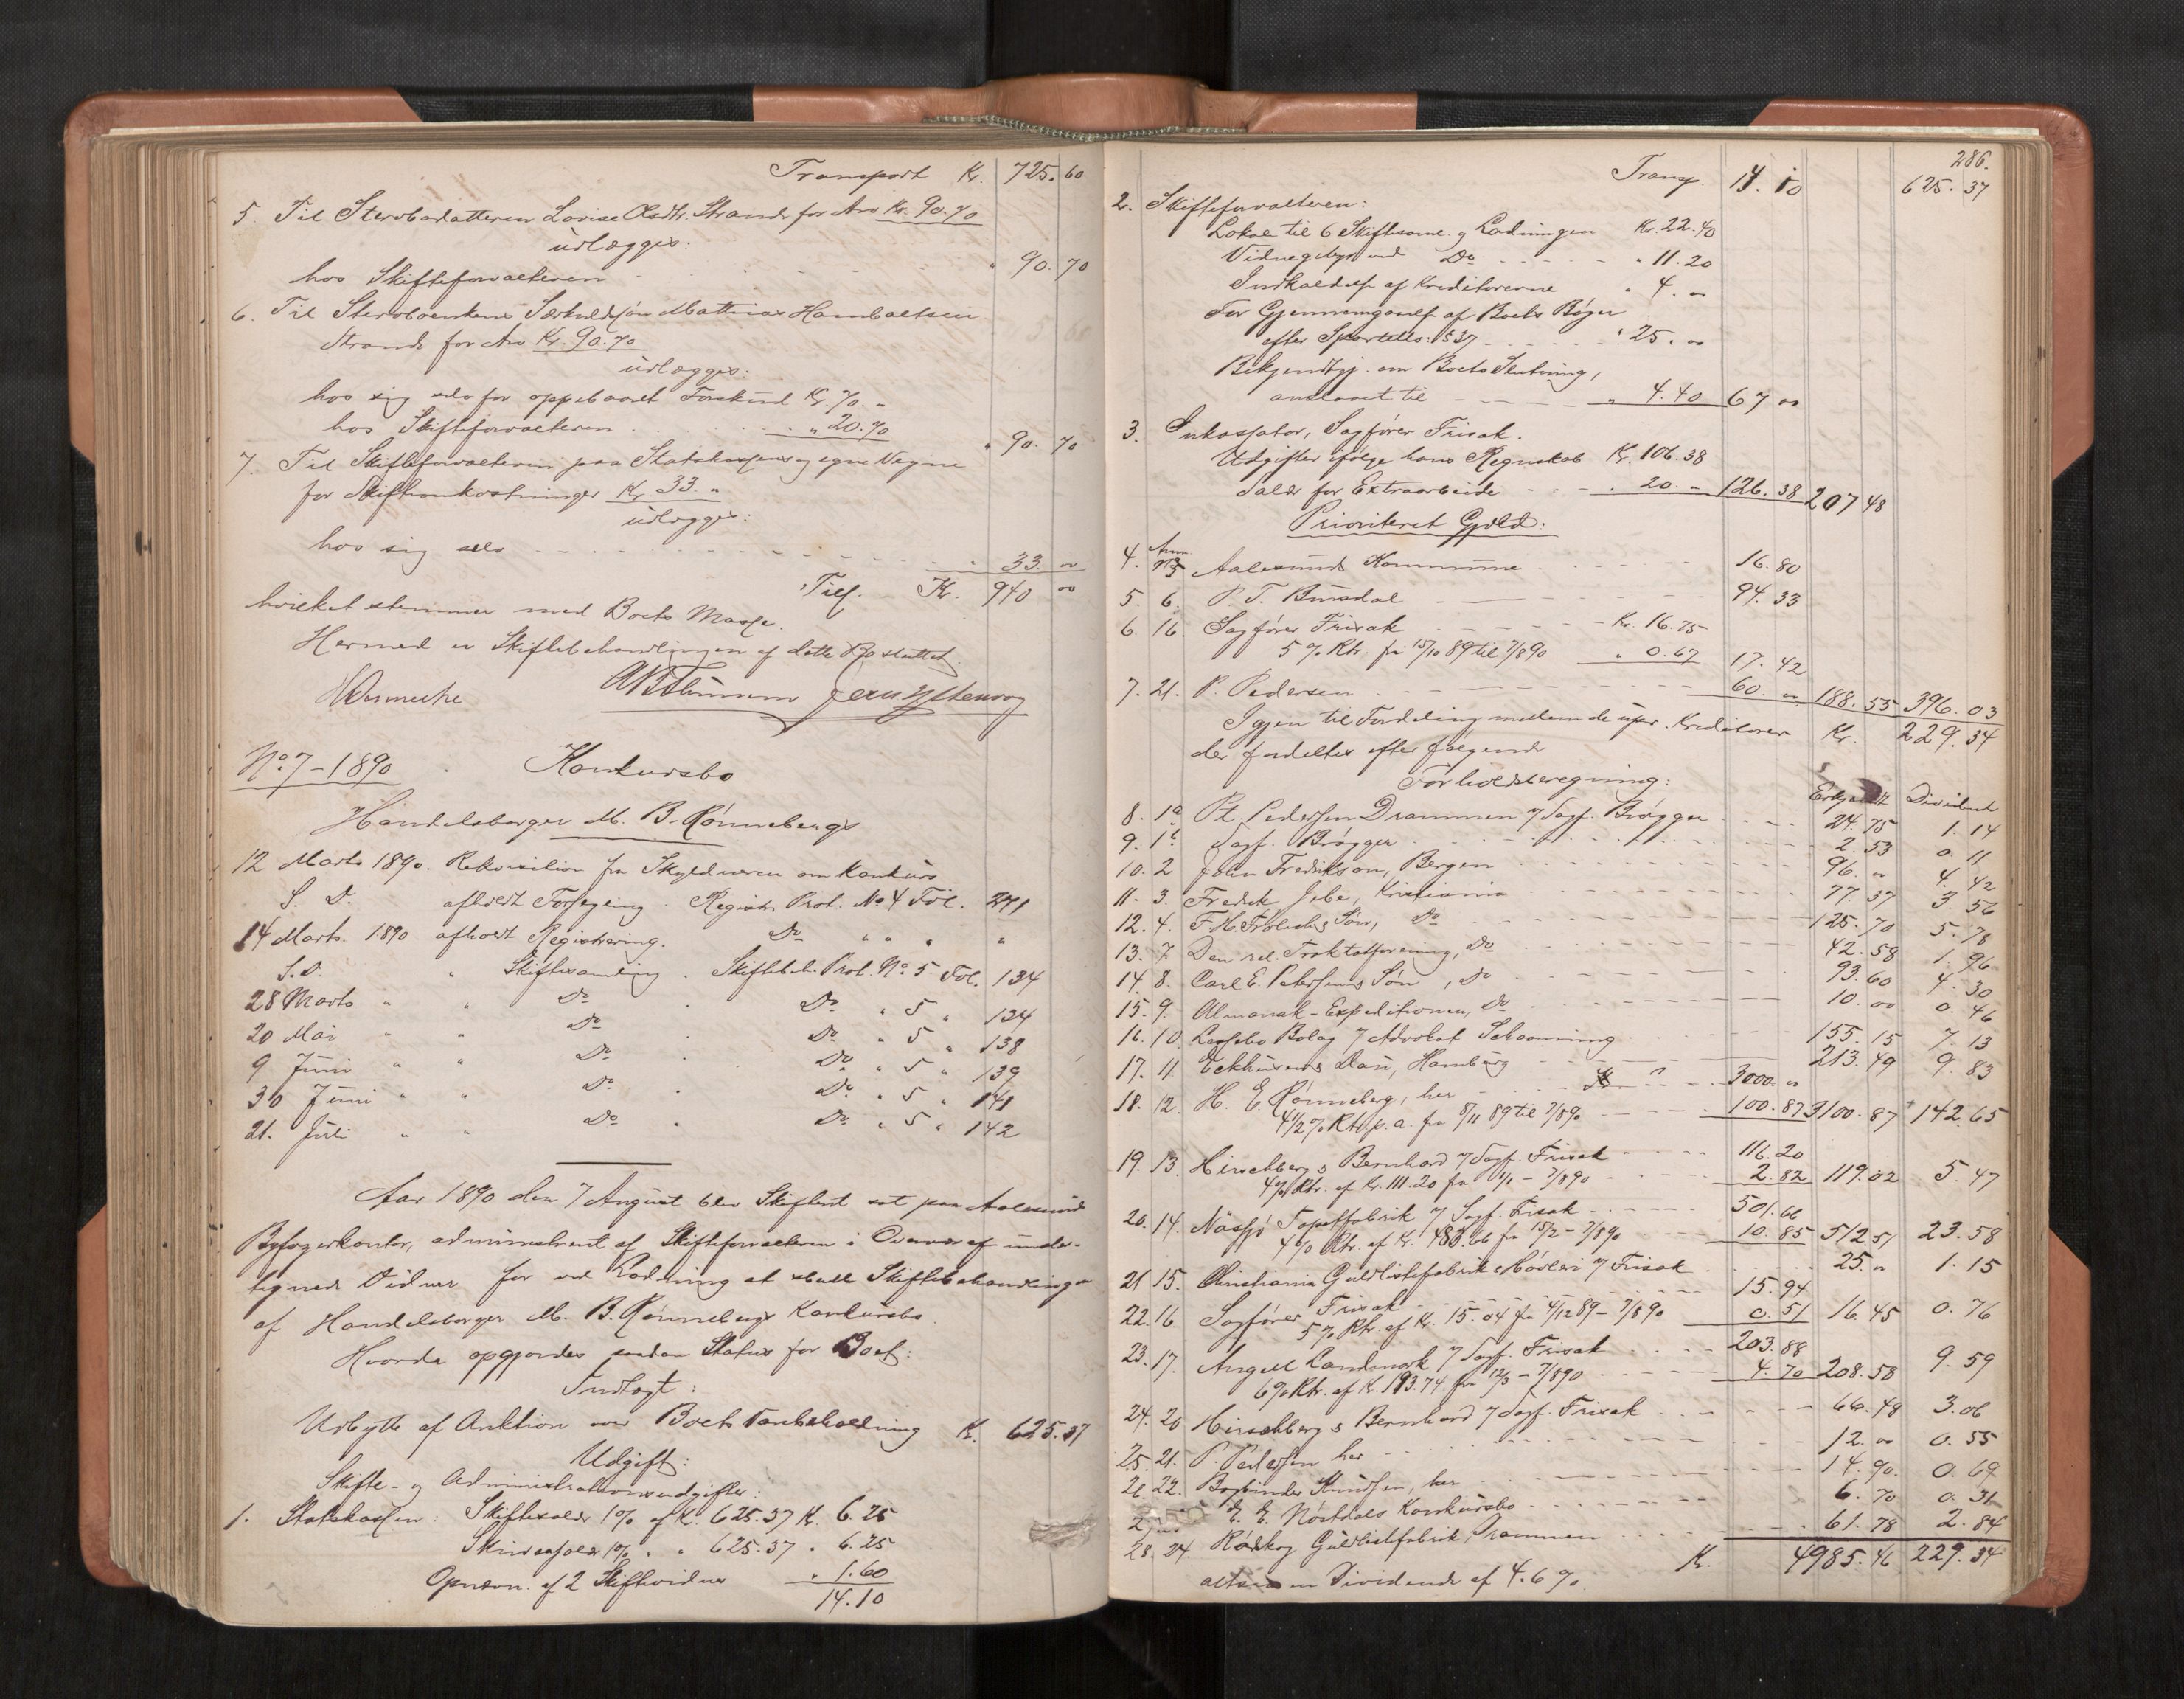 Transport Kr. 725.60
5. Til Stervbodatteren Lovise Olsdtr. Strande for Arv Kr. 90.70
udlægges:
hos Skifteforvalteren " 90.70
6. Til Stervboenkens Mathias
Strande for Arv Kr. 90.70
udlægges:
hos sig selv for oppebaaret Forskud Kr. 70. "
hos Skifteforvalteren " 20.70 " 90.70
7. Til Skifteforvalteren paa Statskassens og egne Vegne
for Skifteomkostninger Kr. 33. "
udlægges:
hos sig selv 33. "
Tils. Kr. 940 "
hvilket stemmer med Boets Masse.
Hermed er Skiftebehandlingen af dette Bo sluttet.
No 7 - 1890 Konkursbo
Handelsborger M. B. Rønnebergs
12 Marts 1890. Rekvisition fra Skyldneren om Konkurs
S. D. afholdt Forsegling. Registr. Prot. No 4 Fol. 271
14 Marts. 1890 afholdt Registrering. Do " " " "
S. D. " Skiftesamling. Skiftebeh. Prot. No 5 Fol. 134
28 Marts " " Do Do " 5 " 134
20 Mai " " Do Do " 5 " 138
9 Juni " " Do Do " 5 " 139
30 Juni " " Do Do " 5 " 141
21. Juli " " Do Do " 5 " 142
Aar 1890 den 7 August blev Skifteret sat paa Aalesunds
Byfogedkontor, administreret af Skifteforvalteren i Overvær af under-
tegnede Vidner for ved Lodning at slutte Skiftebehandlingen
af Handelsborger M. B. Rønnebergs Konkursbo.
Hvorda opgjordes saadan Status for Boet:
Indtægt:
Udbytte af Auktion over Boets Varebeholdning Kr. 625.37
Udgift:
Skifte- og Administrationsudgifter:
1. Statskassen: Skiftesalær 1% af Kr. 625.37 Kr. 6.25
1% " " 625.37 " 6.25
Opnævn. af 2 Skiftevidner " 1.60
14.10
286.
Transp. 14.10 625.37
2. Skifteforvalteren:
Lokale til 6 Skiftesaml. og Lodningen Kr. 22.40
Vidnegebyr ved Do " 11.20
Indkaldelse af Kreditorerne " 4. "
For Gjennemgaaelse af Boets Bøger
efter Sportells: § 37 " 25. "
Bekjendtgj. om Boets Slutning,
anslaaet til " 4.40 67 "
3. Inkassator, Sagfører Frisak.
Udgifter ifølge hans Regnskab Kr. 106.38
Salær for Extraarbeide " 20. " 126.38 207 48
Prioriteret Gjæld:
4. Anm. No 5 Aalesunds Kommune 16.80
5. 6. P. T. Bursdal 94.33
6. 16. Sagfører Frisak Kr. 16.75
5% Rtr. fra 15/10 89 til 7/8 90 " 0.67 17.42
7. 21. P. Pedersen 60. " 188.55 396.03
Igjen til Fordeling mellem de upr. Kreditorer Kr. 229.34
der fordeltes efter følgende
Forholdsberegning:
Erkjendt Dividende
8. 1a Pt. Pedersen Drammen v/ Sagf. Brøgger 24.75 1.14
9. 1b Sagf. Brøgger 2.53 0.11
10. 2 John Fredrikson, Bergen 96. " 4.42
11. 3. Fredrik Jebe, Kristiania 77.37 3.56
12. 4. F. H. Frølichs Søn, Do 125.70 5.78
13. 7. Den rel. Traktatforening, Do 42.58 1.96
14. 8. Carl E. Petersens Søn, Do 93.60 4.30
15. 9. Almanak-Expeditionen, Do 10.00 0.46
16. 10 Lessebo Bolag v/ Advokat Schaanning 155.15 7.13
17. 11. Eckhusens Dau, Hamburg 213.49 9.83
18. 12. H. E. Rønneberg, her 3000. "
4 1/2% Rtr. p. a. fra 8/11 89 til 7/8 90 100.87 3100.87 142.65
19. 13. Hirschberg & Bernhard v/ Sagf. Frisak 116.20
4% Rtr. af Kr. 111.20 fra 1/1 - 7/8 90 2.82 119.02 5.47
20. 14. Nässjö Tapetfabrik v/ Sagf. Frisak 501.66
4% Rtr. af Kr. 480.66 fra 15/2 - 7/8 90 10.85 512.51 23.58
21 15. Christiania Guldlistefabrik v/ Frisak 25. " 1.15
22. 16. Sagfører Frisak 15.94
5% Rtr. af Kr. 15.04 fra 4/12 89 - 7/8 90 0.51 16.45 0.76
23. 17. Angell Landmark v/ Sagf. Frisak 203.88
6% Rtr. af Kr. 193.74 fra 12/3 - 7/8 90 4.70 208.58 9.59
24. 20 Hirschberg & Bernhard v/ Sagf. Frisak 66.48 3.06
25. 21. P. Pedersen her 12. " 0.55
26. 22. Bogbinder Knudsen, her 14.90. 0.69
E. Nørdals Konkursbo 6.70 0.31
28. 24. Guldlistfabrik, Drammen 61.78 2.84
Kr. 4985.46 229.34
altsaa en Dividende af 4.6%.